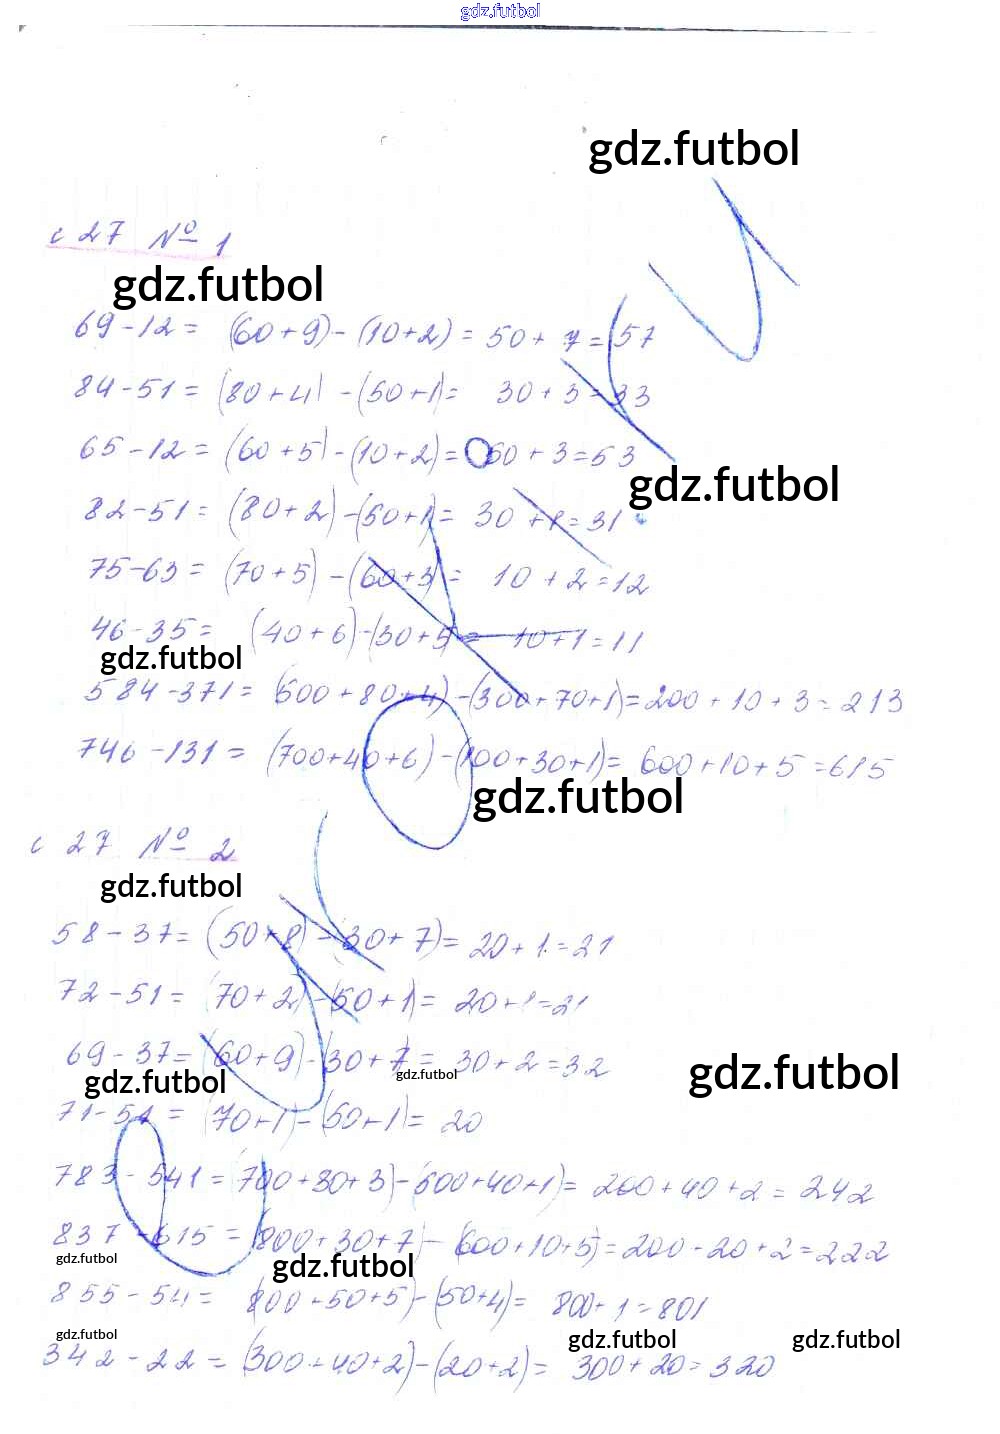 gdz.futbol
gdz.futbol
с 27 № 1
gdz.futbol
69-12= (60+9)-(10+2)= 50+7=57
84-51= (80+4)-(50+1)= 30+3=33
65-12= (60+5)-(10+2)= 50+3=53
gdz.futbol
82-51= (80+2)-(50+1)= 30+1=31
75-63= (70+5)-(60+3)= 10+2=12
46-35= (40+6)-(30+5)= 10+1=11
gdz.futbol
584-371= (500+80+4)-(300+70+1)=200+10+3=213
746-131= (700+40+6)-(100+30+1)= 600+10+5=615
gdz.futbol
с 27 № 2
gdz.futbol
58-37= (50+8)-(30+7)= 20+1=21
72-51= (70+2)-(50+1)= 20+1=21
69-37= (60+9)-(30+7)= 30+2=32
gdz.futbol
gdz.futbol
gdz.futbol
71-51= (70+1)-(50+1)= 20
783-541= (700+80+3)-(500+40+1)= 200+40+2=242
837-615= (800+30+7)-(600+10+5)=200+20+2=222
gdz.futbol
gdz.futbol
855-54= (800+50+5)-(50+4)= 800+1=801
gdz.futbol
gdz.futbol
gdz.futbol
342-22= (300+40+2)-(20+2)= 300+20=320